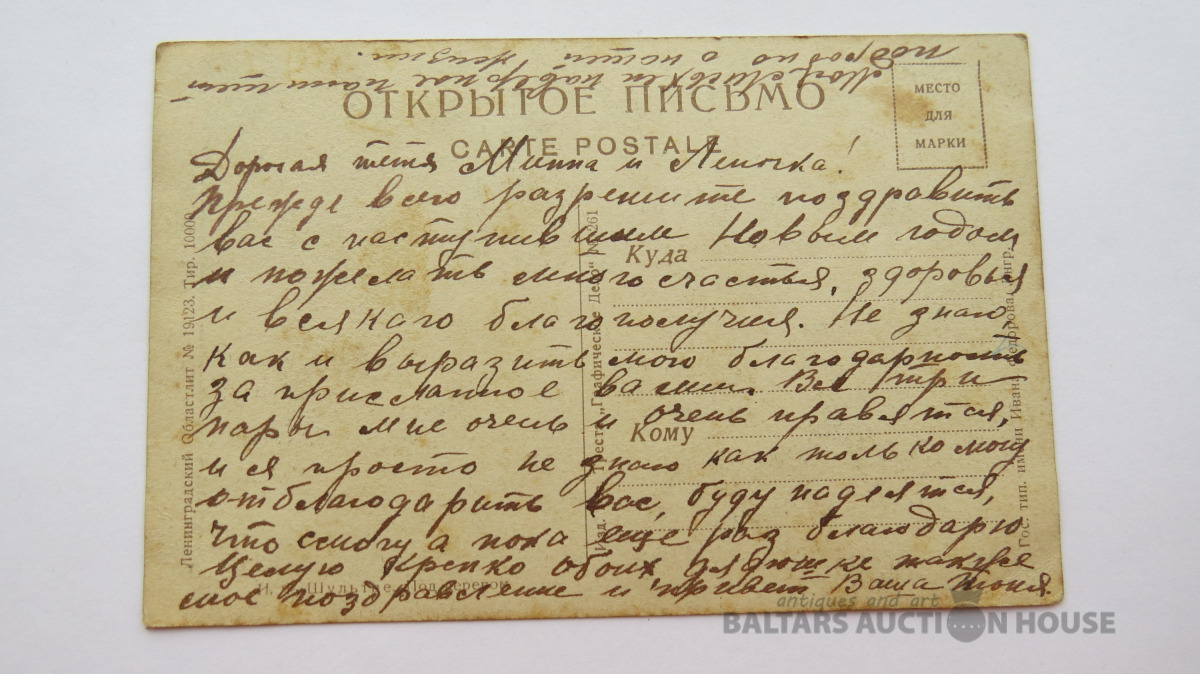 подробно о нашей жизни.
ОТКРЫТОЕ ПИСЬМО
CARTE POSTALE
МЕСТО
ДЛЯ
МАРКИ
Дорогая тётя Минна и Леночка!
Прежде всего разрешите поздравить
вас с наступившим Новым годом
и пожелать много счастья, здоровья
и всякаго благополучия. Не знаю,
как и выразить мою благодарность
за присланное вами. Все три
пары мне очень и очень нравятся,
и я просто не знаю как только могу
отблагодарить вас, буду надеятся,
что смогу а пока еще раз благодарю
Целую Крепко обоих также
мое поздравление и привет Ваша Тоня.
Куда
Кому
Ленинградский Областлит № 19123. Тир. 10000
Изд. треста „Графическое Дело“ № 261
Гос. тип. имени Ивана Федорова
И. Шультце. Под
antiques and art
BALTARS AUCTION HOUSE